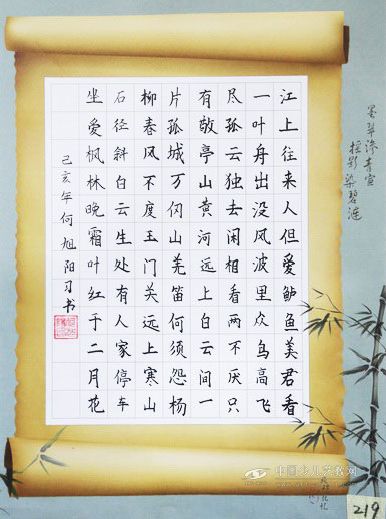 墨翠青宣
摇影染碧涟
江上往来人但爱鲈鱼美君看
一叶舟出没风波里众鸟高飞
尽孤云独去闲相看两不厌只
有敬亭山黄河远上白云间一
片孤城万仞山羌笛何须怨杨
柳春风不度玉门关远上寒山
石径斜白云生处有人家停车
坐爱枫林晚霜叶红于二月花
己亥年何旭阳习书
中国少儿艺教网
219